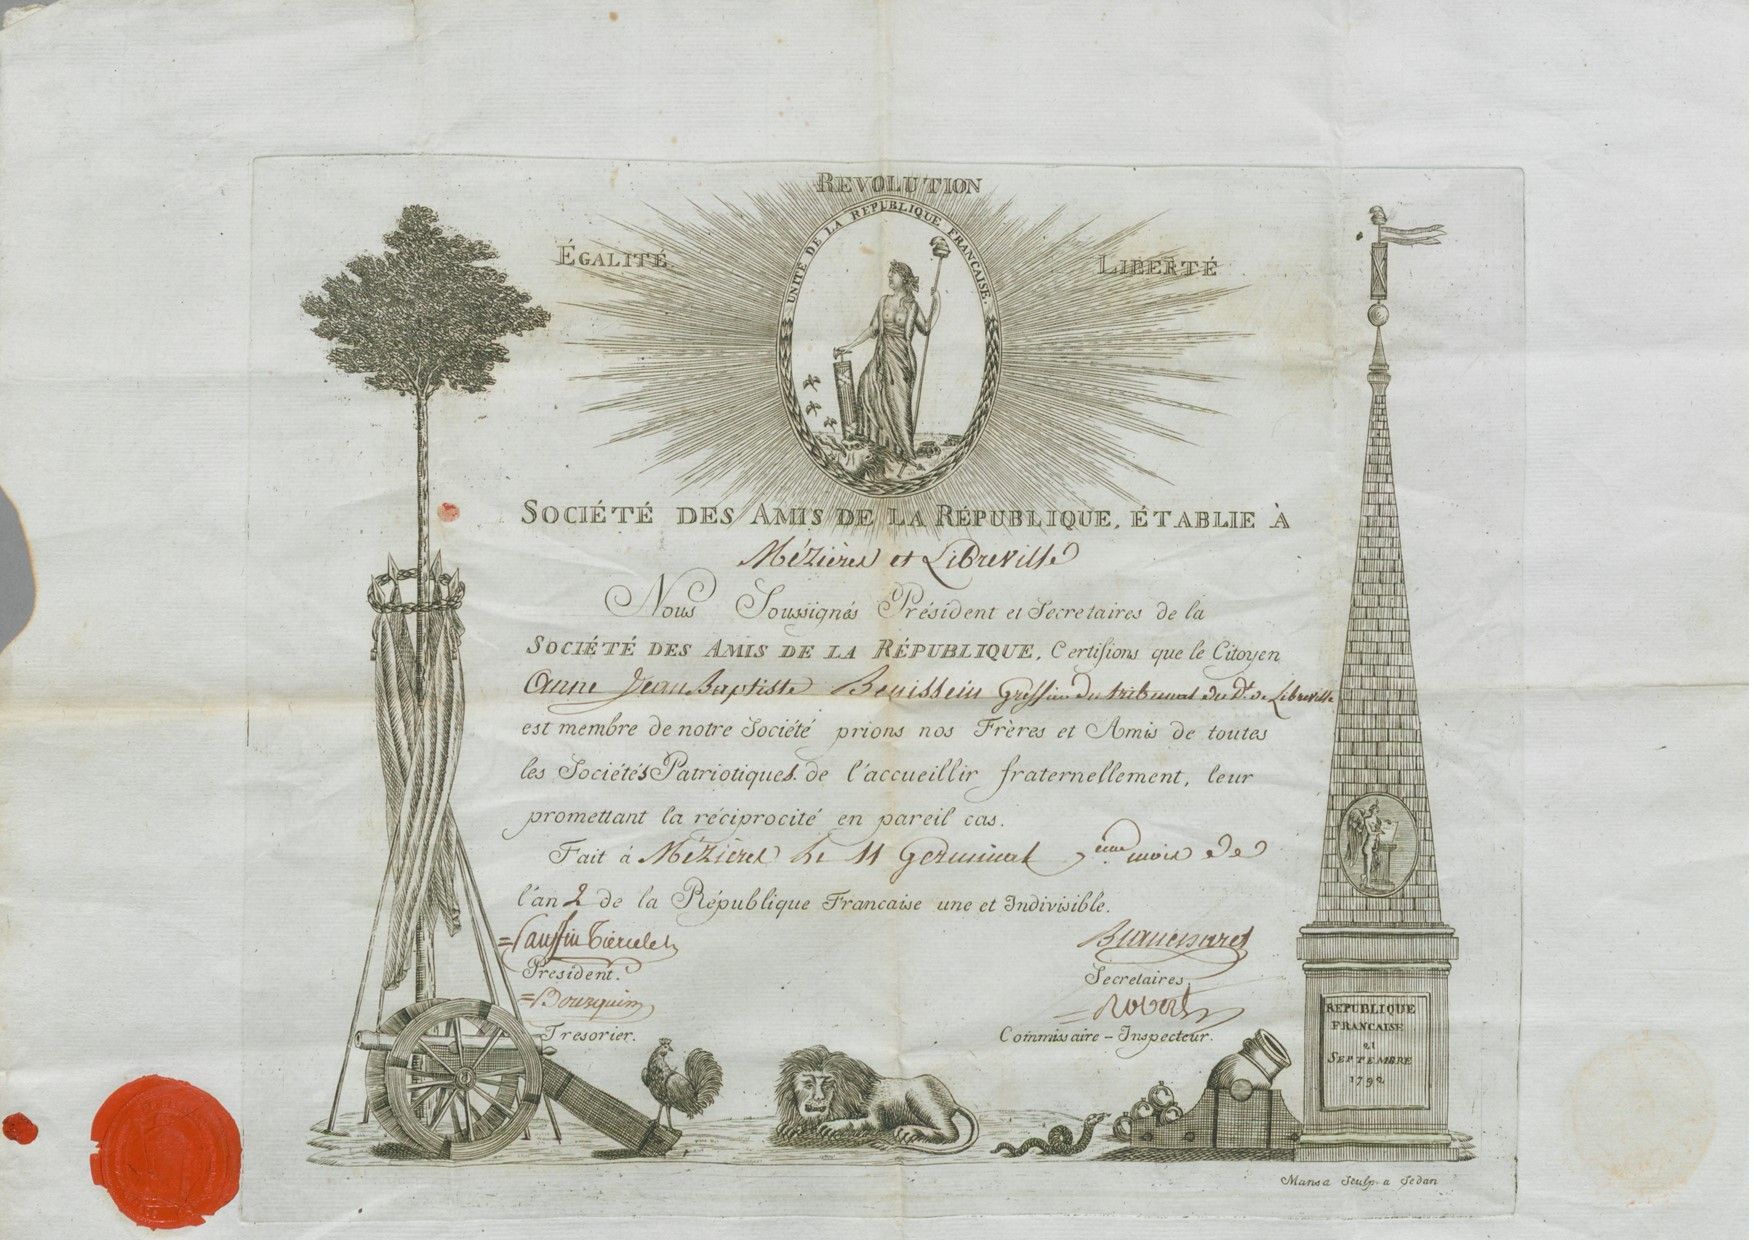 REVOLUTION
UNITÉ DE LA REPUBLIQUE FRANÇAISE.
ÉGALITÉ.
LIBERTÉ
SOCIÉTÉ DES AMIS DE LA RÉPUBLIQUE, ÉTABLIE À
Mézières et Libreville
Nous Soussignés Président et Secretaires de la
SOCIÉTÉ DES AMIS DE LA RÉPUBLIQUE, Certifions que le Citoyen
Anne Jean Baptiste Greffier du tribunal du Dt. de Libreville
est membre de notre Société prions nos Frères et Amis de toutes
les Sociétés Patriotiques de l'accueillir fraternellement, leur
promettant la réciprocité en pareil cas.
Fait à Mézières le 11 Germinal 7ème mois de
l'an 2 de la République Francaise une et Indivisible.
President.
Secretaires.
Bourquin
Robert
Tresorier.
Commissaire-Inspecteur.
REPUBLIQUE
FRANCAISE
21
SEPTEMBRE
1792
Mansa Sculp. a Sedan